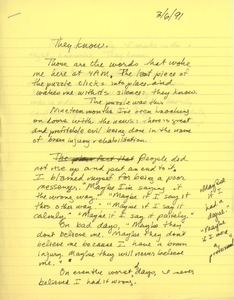 3/6/91
They know.
Those are the words that woke
me here at 4AM. The last piece of
the puzzle clicks into place and
wakes me with its silence: they know.
The puzzle was this:
Nineteen months I've been knocking
on doors with the news: here is great
and profitable evil being done in the name
of brain injury rehabilitation.
The plain fact that People did
not rise up and put an end to it
I blamed myself for being a poor
messenger. "Maybe I'm saying it
the wrong way." "Maybe if I say it
this other way." "Maybe if I say it
calmly." "Maybe if I say it politely."
On bad days, "Maybe they
don't believe me. Maybe they don't
believe me because I have a brain
injury. Maybe they will never believe
me."
On even the worst days, I never
believed I had it wrong.
"Maybe
if I
had a
degree."
"Maybe
if I were
a
professional